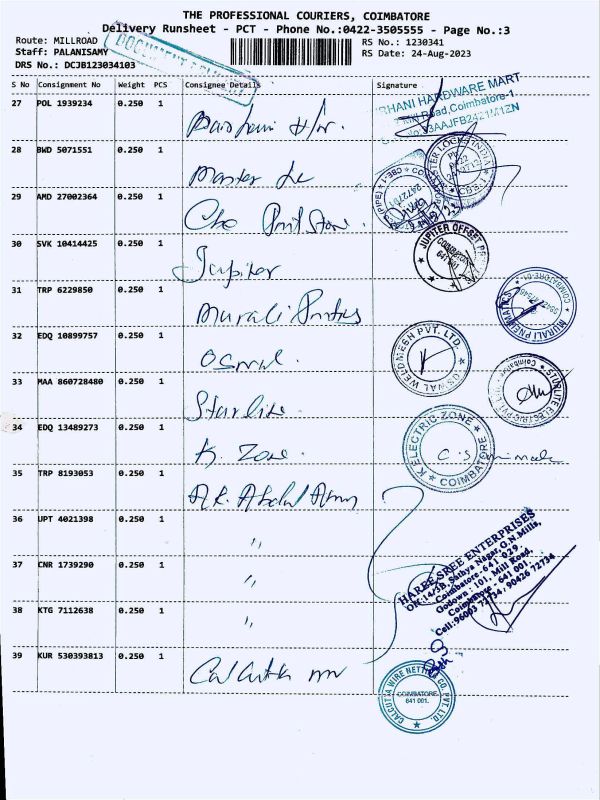 THE PROFESSIONAL COURIERS, COIMBATORE
Delivery Runsheet - PCT - Phone No.:0422-3505555 - Page No.:3
Route: MILLROAD
RS No.: 1230341
Staff: PALANISAMY
RS Date: 24-Aug-2023
DRS No.: DCJB123034103
DOCUMENT
S No Consignment No Weight PCS Consignee Details Signature
27 POL 1939234 0.250 1
HANI HARDWARE MART
Mill Road, Coimbatore-1
33AAJFB2421M1ZN
28 BWD 5071551 0.250 1 Master
29 AMD 27002364 0.250 1
30 SVK 10414425 0.250 1 Jupiter
JUPITER OFFSET
COIMBATORE
641
31 TRP 6229850 0.250 1 Murali
MURALI PNEUMATICS
COIMBATORE-01
32 EDQ 10899757 0.250 1
OSWAL WELDMESH PVT. LTD.
33 MAA 860728480 0.250 1 Starlite
STARLITE ELECTRIC PVT. LTD.
Coimbatore
34 EDQ 13489273 0.250 1 K. Zone.
K ELECTRIC-ZONE
COIMBATORE
35 TRP 8193053 0.250 1 A.K. Abdul
36 UPT 4021398 0.250 1 "
37 CNR 1739290 0.250 1 "
38 KTG 7112638 0.250 1 "
HAREE SREE ENTERPRISES
Off:14/3B, Sathya Nagar, G.N.Mills,
Coimbatore-641 029.
Godown : 101, Mill Road,
Coimbatore - 641 001.
Cell:96003 72734, 90426 72734
39 KUR 530393813 0.250 1 Calcutta
CALCUTTA WIRE NETTING CO. PVT. LTD.
COIMBATORE
641 001.